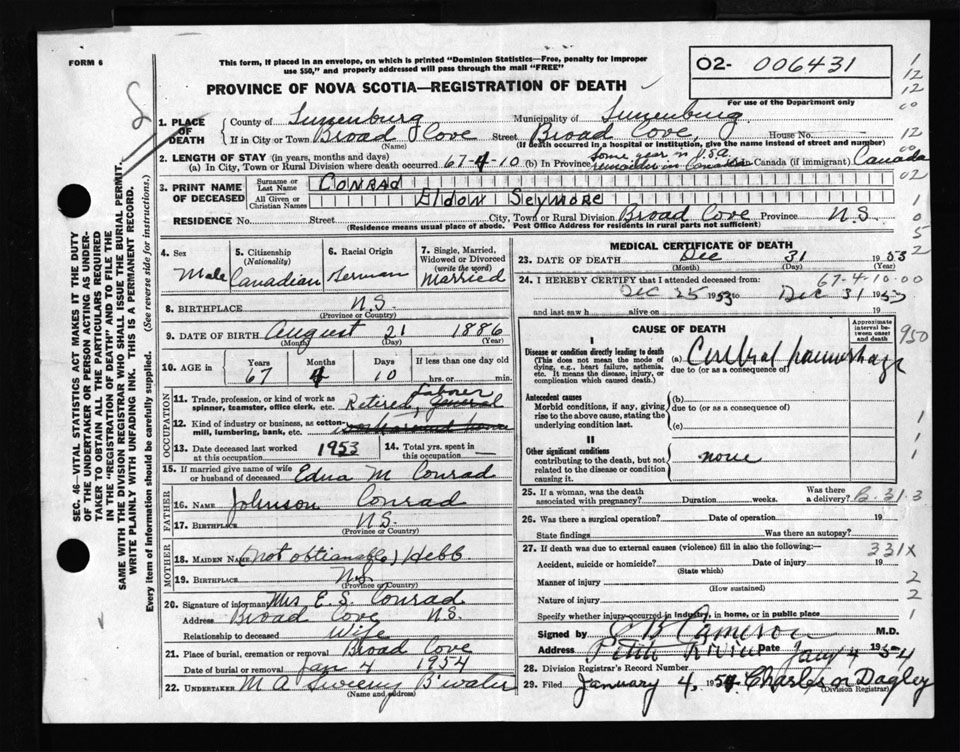 FORM 6
This form, if placed in an envelope, on which is printed "Dominion Statistics—Free, penalty for improper
use $50," and properly addressed will pass through the mail "FREE"
PROVINCE OF NOVA SCOTIA—REGISTRATION OF DEATH
O2- 006431
For use of the Department only
1. PLACE OF DEATH
County of Lunenburg Municipality of Lunenburg
If in City or Town Broad Cove Street Broad Cove House No.
(Name) (If death occurred in a hospital or institution, give the name instead of street and number)
2. LENGTH OF STAY (in years, months and days)
(a) In City, Town or Rural Division where death occurred 67-4-10 (b) In Province Some year in U.S.A. remainder in Canada in Canada (if immigrant) Canada
3. PRINT NAME OF DECEASED
Surname or Last Name CONRAD
All Given or Christian Names Eldon Seymore
RESIDENCE No. Street City, Town or Rural Division Broad Cove Province N.S.
(Residence means usual place of abode. Post Office Address for residents in rural parts not sufficient)
4. Sex Male
5. Citizenship (Nationality) Canadian
6. Racial Origin German
7. Single, Married, Widowed or Divorced (write the word) Married
8. BIRTHPLACE N.S.
(Province or Country)
9. DATE OF BIRTH August 21 1886
(Month) (Day) (Year)
10. AGE in Years 67 Months 4 Days 10 If less than one day old
hrs. or min.
OCCUPATION
11. Trade, profession, or kind of work as spinner, teamster, office clerk, etc. Retired, Laborer General
12. Kind of industry or business, as cotton-mill, lumbering, bank, etc.
13. Date deceased last worked at this occupation 1953
14. Total yrs. spent in this occupation —
15. If married give name of wife or husband of deceased Edna M Conrad
FATHER
16. NAME Johnson Conrad
17. BIRTHPLACE N.S.
(Province or Country)
MOTHER
18. MAIDEN NAME (not obtianable) Hebb
19. BIRTHPLACE N.S.
(Province or Country)
20. Signature of informant Mrs E. S. Conrad
Address Broad Cove N.S.
Relationship to deceased Wife
21. Place of burial, cremation or removal Broad Cove
Date of burial or removal Jan 4 1954
22. UNDERTAKER M A Sweeny B'water
(Name and address)
MEDICAL CERTIFICATE OF DEATH
23. DATE OF DEATH Dec 31 1953
(Month) (Day) (Year)
24. I HEREBY CERTIFY that I attended deceased from: 67-4-10-00
Dec 25 1953 to Dec 31 1953
and last saw h alive on 19
CAUSE OF DEATH
Approximate interval between onset and death
I
Disease or condition directly leading to death (a) Cerebral haemorrhage
(This does not mean the mode of dying, e.g., heart failure, asthenia, etc. It means the disease, injury, or complication which caused death.)
due to (or as a consequence of)
Antecedent causes (b)
Morbid conditions, if any, giving rise to the above cause, stating the underlying condition last.
due to (or as a consequence of)
(c)
II
Other significant conditions
contributing to the death, but not related to the disease or condition causing it.
none
25. If a woman, was the death associated with pregnancy? Duration weeks. Was there a delivery? B-31-3
26. Was there a surgical operation? Date of operation 19
State findings Was there an autopsy?
27. If death was due to external causes (violence) fill in also the following:— 331X
Accident, suicide or homicide? Date of injury 19
(State which)
Manner of injury
(How sustained)
Nature of injury
Specify whether injury occurred in industry, in home, or in public place
Signed by Cameron M.D.
Address Petite Riviere Date Jany 4 1954
28. Division Registrar's Record Number
29. Filed January 4, 1954. Charles R Dagley
(Division Registrar)
1
12
12
00
12
00
02
1
0
5
2
950
1
1
1
2
2
1
SEC. 46—VITAL STATISTICS ACT MAKES IT THE DUTY
OF THE UNDERTAKER OR PERSON ACTING AS UNDER-
TAKER TO OBTAIN ALL THE PARTICULARS REQUIRED
IN THE "REGISTRATION OF DEATH" AND TO FILE THE
SAME WITH THE DIVISION REGISTRAR WHO SHALL ISSUE THE BURIAL PERMIT.
WRITE PLAINLY WITH UNFADING INK. THIS IS A PERMANENT RECORD.
Every item of information should be carefully supplied. (See reverse side for instructions.)